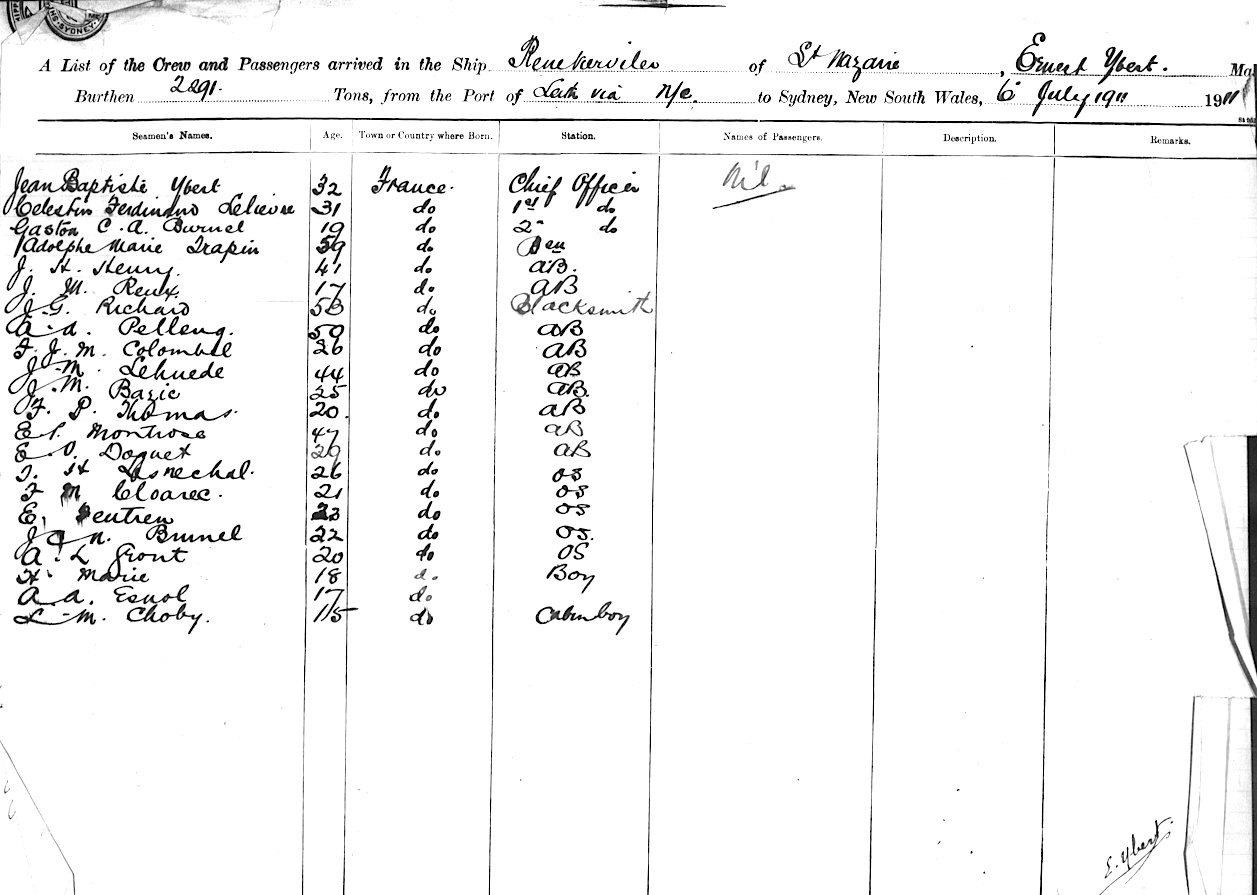 SYDNEY
A List of the Crew and Passengers arrived in the Ship Rene Kerviler of St Nazaire, Ernest Ybert. Ma
Burthen 2291. Tons, from the Port of Leith via N/C. to Sydney, New South Wales, 6 July 1911 1911
Seamen's Names. Age. Town or Country where Born. Station. Names of Passengers. Description. Remarks.
Jean Baptiste Ybert 32 France. Chief Officer Nil.
Celestin Ferdinand Lelievre 31 do 1st do
Gaston C. A. Burnel 19 do 2 do
Adolphe Marie Trapin 59 do
J. H. Henry. 41 do AB.
J. M. Reux. 17 do AB
J. G. Richard 53 do Blacksmith
A. A. Pelleng. 59 do AB
F. J. M. Colombel 26 do AB
J. M. Lehuede 44 do AB
J. M. Bazic 25 do AB.
F. P. Thomas. 20 do AB
E. Montrose 47 do AB
E. O. Doguet 29 do AB
H Lesnechal. 26 do OS
F M Cloarec. 21 do OS
E, 23 do OS
J N. Brunel 22 do OS.
A. L Gront 20 do OS
H. Marie 18 do Boy
A. A. Esnol 17 do
L. M. Choby. 15 do Cabin boy
E. Ybert.